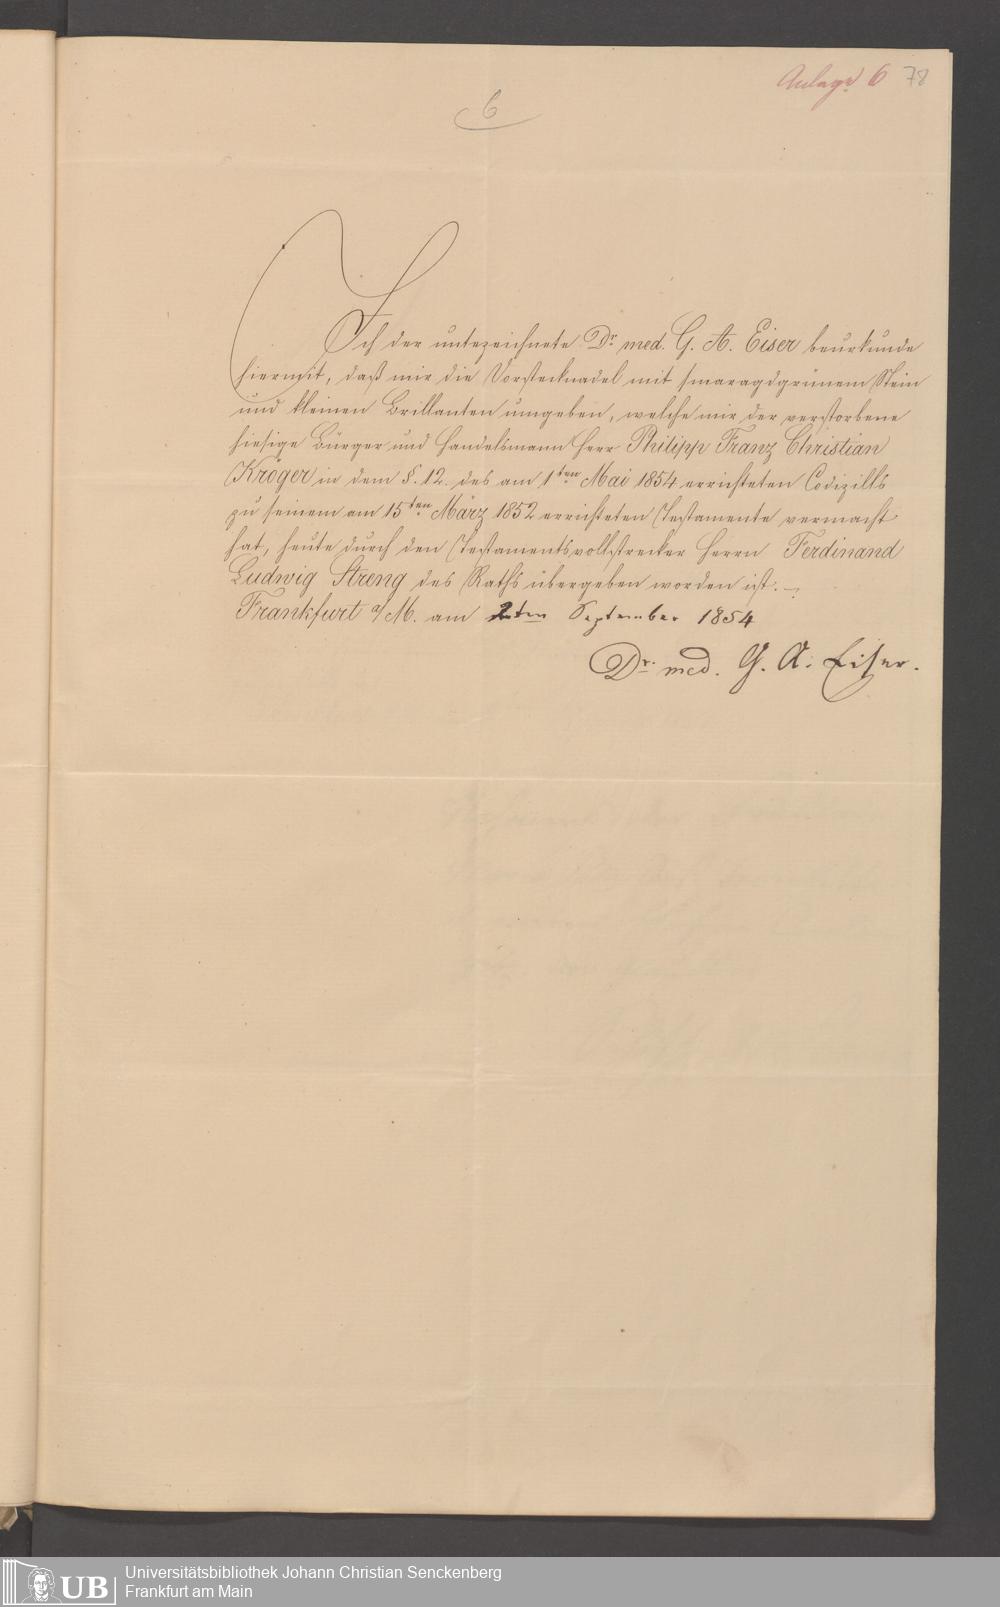 Anlage 6 78
6
Ich der unterzeichnete Dr. med. G. A. Eiser beurkunde
hiermit, daß mir die Vorstecknadel mit smaragdgrünem Stein
und kleinen Brillanten umgeben, welche mir der verstorbene
hiesige Bürger und Handelsmann Herr Philipp Franz Christian
Kröger in dem §. 12. des am 1ten Mai 1854 errichteten Codizills
zu seinem am 15ten März 1852 errichteten Testamente vermacht
hat, heute durch den Testamentsvollstrecker Herrn Ferdinand
Ludwig Streng des Raths übergeben worden ist. –
Frankfurt a/M. am 2ten September 1854
Dr. med. G. A. Eiser.
UB Universitätsbibliothek Johann Christian Senckenberg
Frankfurt am Main